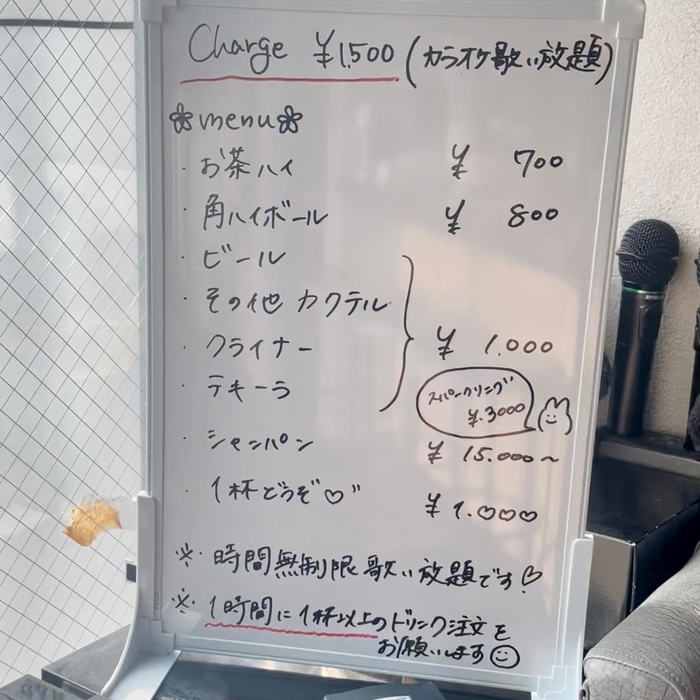 Charge ¥1,500 (カラオケ歌い放題)
menu
・お茶ハイ ¥ 700
・角ハイボール ¥ 800
・ビール
・その他 カクテル
・クライナー ¥ 1.000
・テキーラ
スパークリング ¥.3000
・シャンパン ¥ 15.000~
・1杯どうぞ♡" ¥ 1.000
※・時間無制限歌い放題です♡
※・1時間に1杯以上のドリンク注文を
お願いします☺